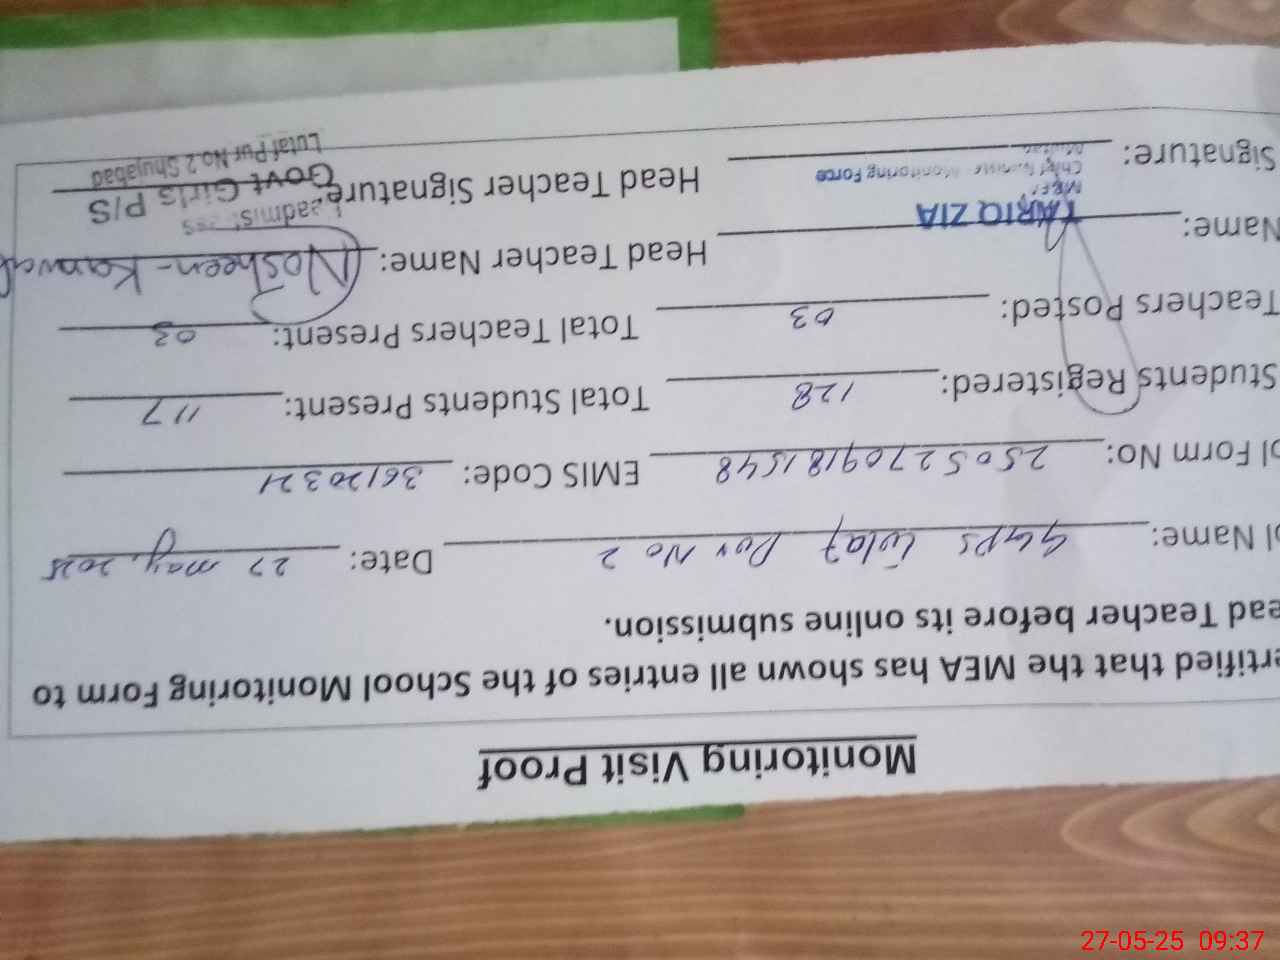 Monitoring Visit Proof
ertified that the MEA has shown all entries of the School Monitoring Form to
ead Teacher before its online submission.
ol Name: GGPS Lutaf Pur No 2 Date: 27 may, 2025
ol Form No: 25052709181548 EMIS Code: 36120321
Students Registered: 128 Total Students Present: 117
Teachers Posted: 03 Total Teachers Present: 03
Name: TARIQ ZIA Head Teacher Name: Nosheen-Kanwal
MEA
Signature: Chief Monitoring Force Head Teacher Signature:
Multan
Govt Girls P/S
Lutaf Pur No.2 Shujabad
27-05-25 09:37